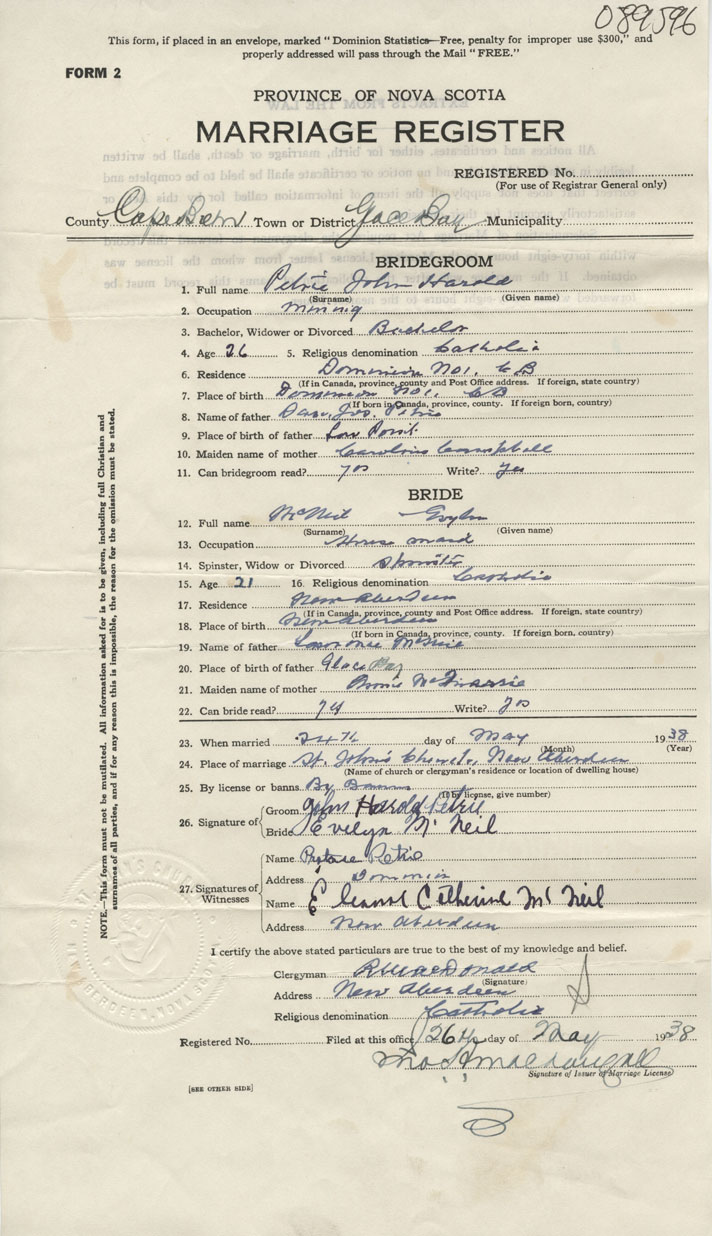 089596
This form, if placed in an envelope, marked "Dominion Statistics—Free, penalty for improper use $300," and
properly addressed will pass through the Mail "FREE."
FORM 2
PROVINCE OF NOVA SCOTIA
MARRIAGE REGISTER
REGISTERED No.
(For use of Registrar General only)
County Cape Breton Town or District Glace Bay Municipality
BRIDEGROOM
1. Full name Petrie John Harold
(Surname) (Given name)
2. Occupation mining
3. Bachelor, Widower or Divorced Bachelor
4. Age 26 5. Religious denomination Catholic
6. Residence Dominion No1. C B
(If in Canada, province, county and Post Office address. If foreign, state country)
7. Place of birth Dominion No1. C B
(If born in Canada, province, county. If foreign born, country)
8. Name of father Jos. Petrie
9. Place of birth of father Low Point
10. Maiden name of mother Caroline Campbell
11. Can bridegroom read? yes Write? yes
BRIDE
12. Full name McNeil Evelyn
(Surname) (Given name)
13. Occupation House maid
14. Spinster, Widow or Divorced Spinster
15. Age 21 16. Religious denomination Catholic
17. Residence New Aberdeen
(If in Canada, province, county and Post Office address. If foreign, state country)
18. Place of birth New Aberdeen
(If born in Canada, province, county. If foreign born, country)
19. Name of father Lawrence McNeil
20. Place of birth of father Glace Bay
21. Maiden name of mother
22. Can bride read? yes Write? yes
23. When married 24th day of May 1938
(Month) (Year)
24. Place of marriage St. John's Church, New Aberdeen
(Name of church or clergyman's residence or location of dwelling house)
25. By license or banns By Banns
(If by license, give number)
26. Signature of Groom John Harold Petrie
Bride Evelyn McNeil
27. Signatures of Witnesses
Name Petrie
Address Dominion
Name Eleanor Catherine McNeil
Address New Aberdeen
I certify the above stated particulars are true to the best of my knowledge and belief.
Clergyman MacDonald
(Signature)
Address New Aberdeen
Religious denomination Catholic
Registered No. Filed at this office 26th day of May 1938
MacDougall
Signature of Issuer of Marriage License)
[SEE OTHER SIDE]
NOTE.—This form must not be mutilated. All information asked for is to be given, including full Christian and
surnames of all parties, and if for any reason this is impossible, the reason for the omission must be stated.